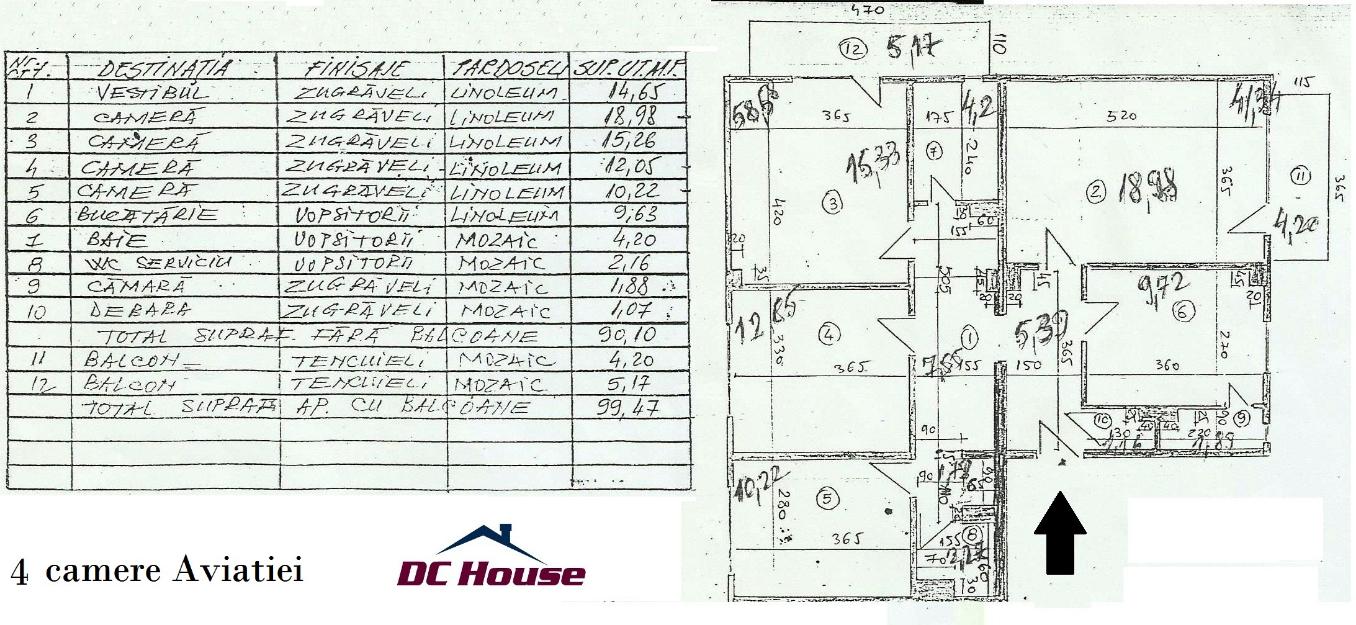 NR. CRT. DESTINAȚIA FINISAJE PARDOSELI SUP. UT. M.P.
1 VESTIBUL ZUGRĂVELI LINOLEUM 14,65
2 CAMERĂ ZUGRĂVELI LINOLEUM 18,98
3 CAMERĂ ZUGRĂVELI LINOLEUM 15,26
4 CAMERĂ ZUGRĂVELI LINOLEUM 12,05
5 CAMERĂ ZUGRĂVELI LINOLEUM 10,22
6 BUCĂTĂRIE VOPSITORII LINOLEUM 9,63
7 BAIE VOPSITORII MOZAIC 4,20
8 WC SERVICIU VOPSITORII MOZAIC 2,16
9 CĂMARĂ ZUGRĂVELI MOZAIC 1,88
10 DEBARA ZUGRĂVELI MOZAIC 1,07
TOTAL SUPRAF. FĂRĂ BALCOANE 90,10
11 BALCON TENCUIELI MOZAIC 4,20
12 BALCON TENCUIELI MOZAIC 5,17
TOTAL SUPRAF. AP. CU BALCOANE 99,47
4 camere Aviatiei
DC House
470
12 5,17 110
365 175 4,2 520 115
15,33 7 240
3 420 2 18,98 365 11 365
60 4,20
155
20 35 505 45 9,72 45
20 20 20
12 85 4 330 1 5,39 6 270
365 155 150 365 360
90 10 40 40 90 9
130 220
10,22 5 280 90 65 90
365 155 8
70 2,27 60
30